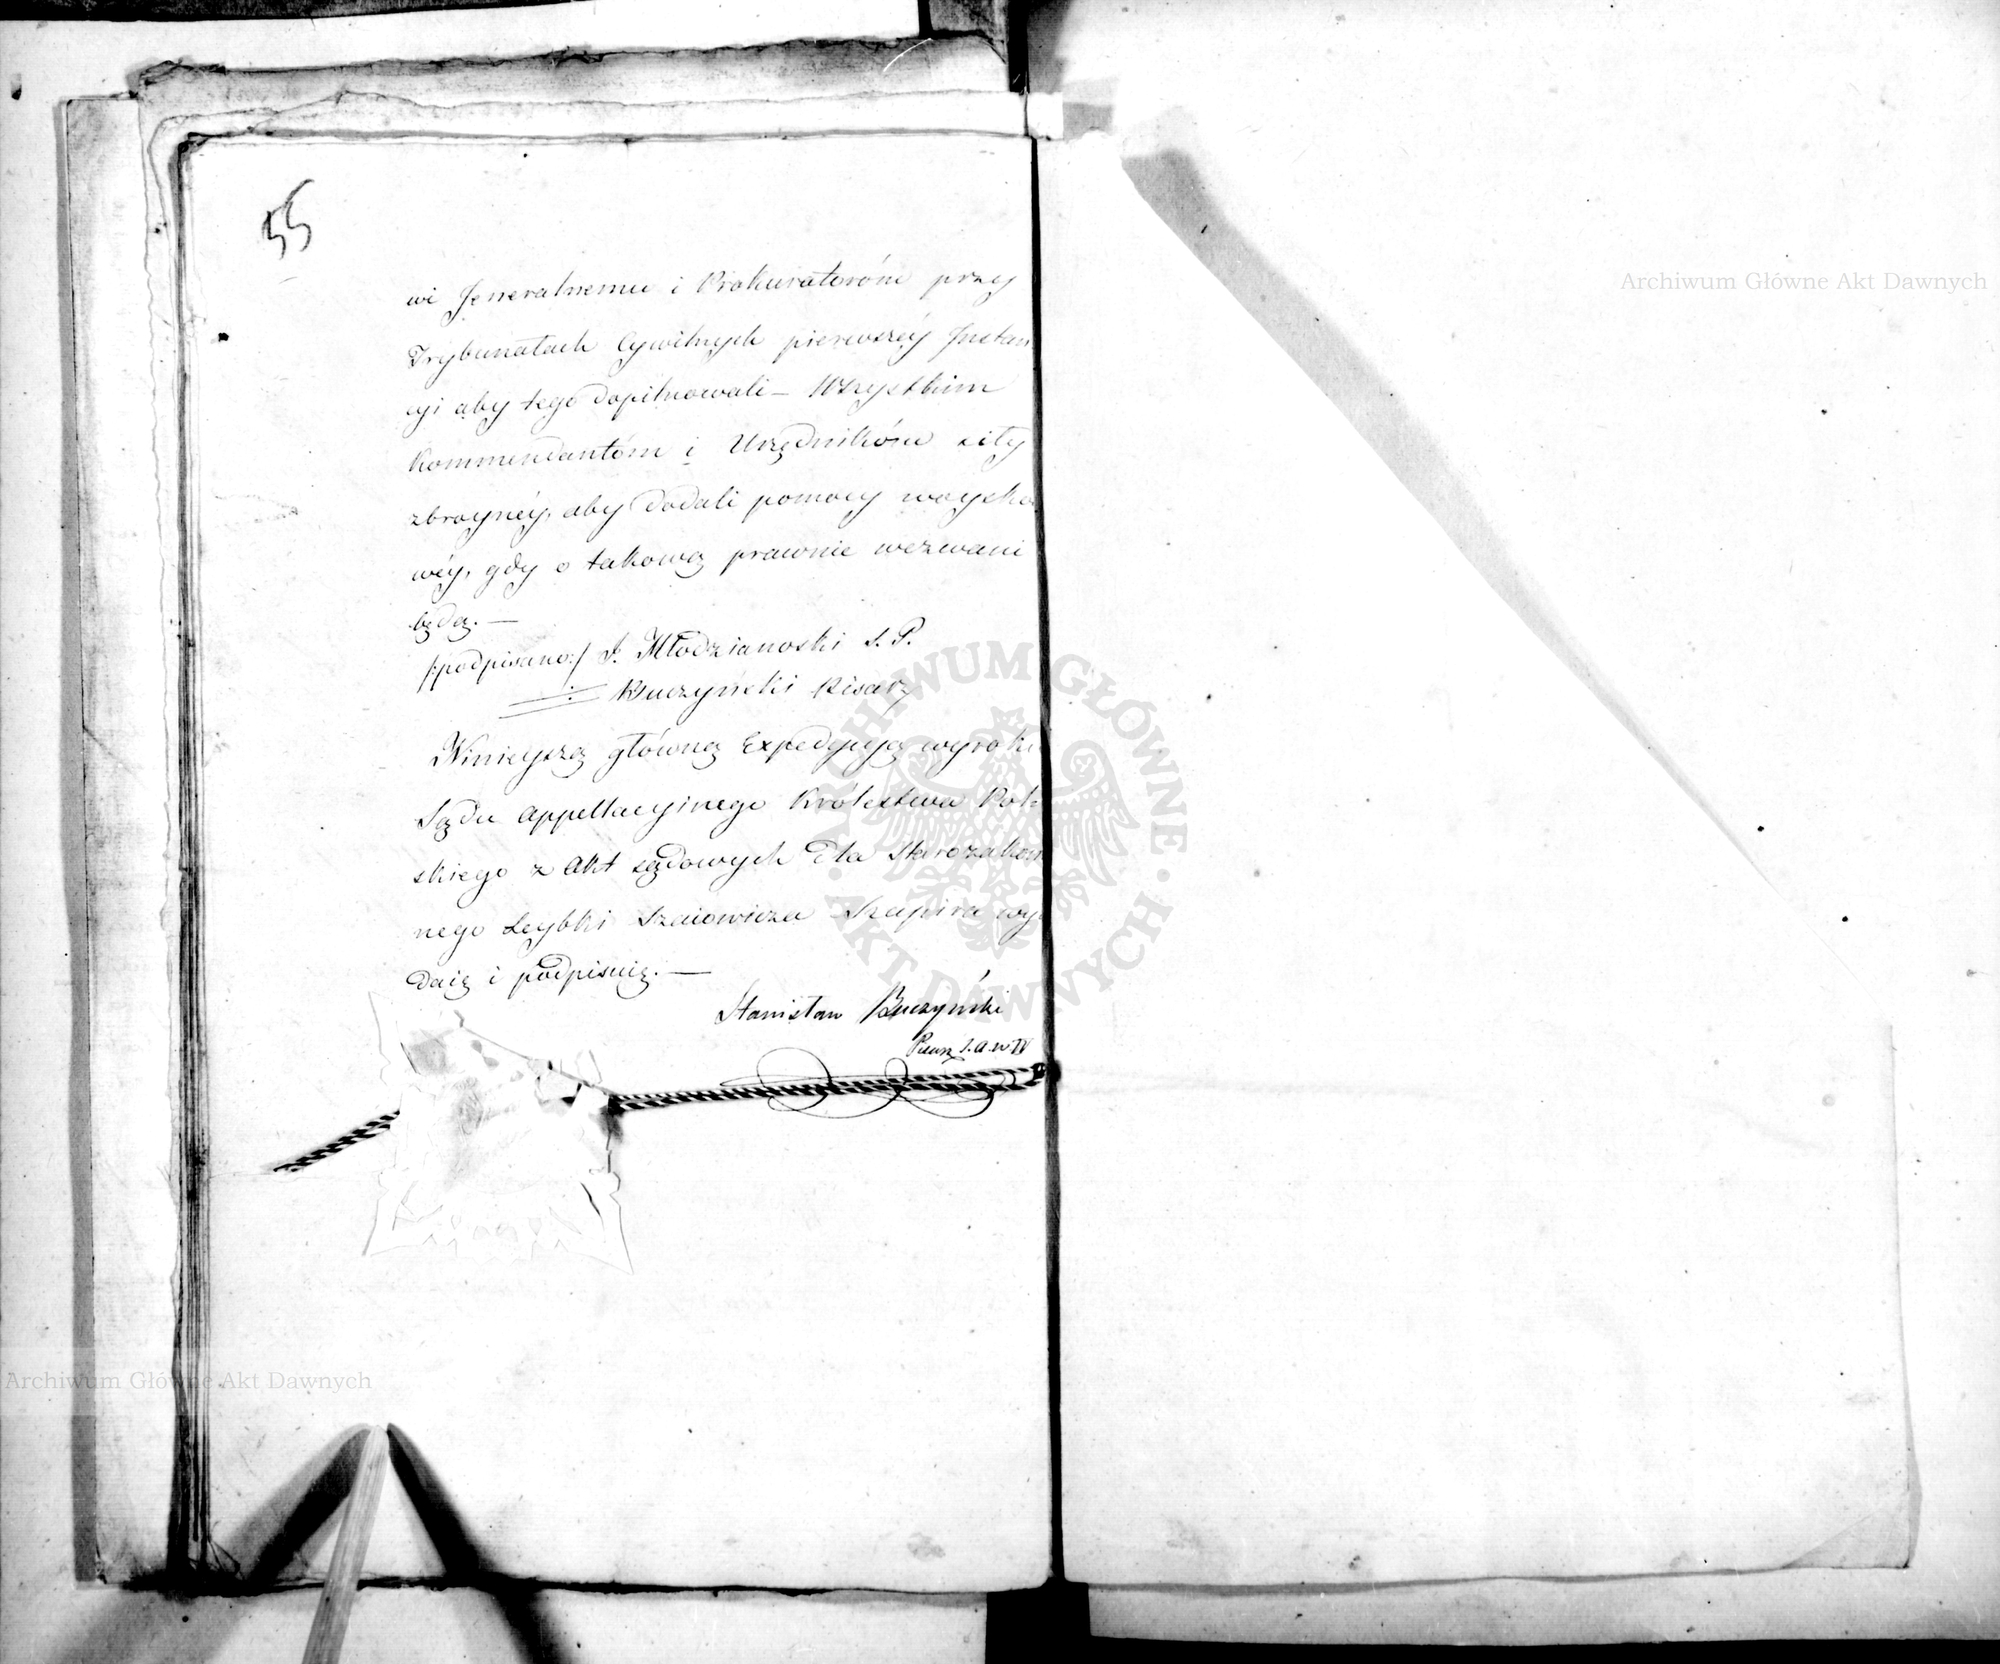 55
wi Jeneralnemu i Prokuratoróm przy
Trybunałach Cywilnych pierwszéy Instan
cyi aby tego dopilnowali – Wszystkim
Kommendantóm i Urzędnikóm siły
zbroynéy, aby dodali pomocy woysko
wéy, gdy o takową prawnie wezwani
będą. —
/:podpisano:/ J. Młodzianoski S. P.
Buczyński Pisarz
Ninieyszą główną Expedycyą wyroku
Sądu Appellacyinego Królestwa Pol
skiego z Akt sądowych dla Starozakon
nego Leybki Szaiowicza Szapira wy
daię i podpisuię. —
Stanisław Buczyński
Pisarz S. A. w
Archiwum Główne Akt Dawnych
ARCHIWUM GŁÓWNE · AKT DAWNYCH ·
Archiwum Główne Akt Dawnych